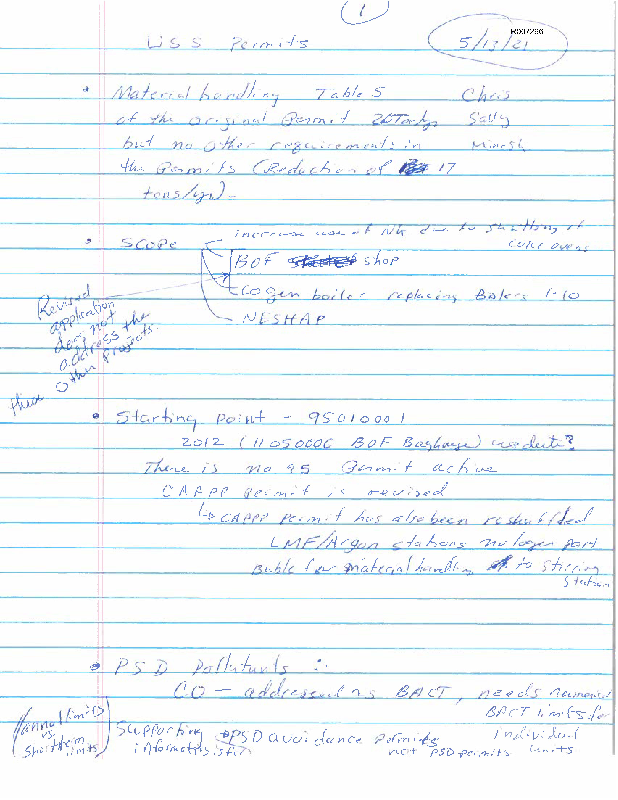 1
R007296
USS Permits 5/13/21
* Material handling Table 5 Chris
of the original Permit Sally
but no other requirements in Minesh
the Permits (Reduction of 17
tons/yr)
SCOPE increase use of NG due to shutting of
coke ovens
BOF shop
Cogen boiler replacing Boilers 1-10
NESHAP
Revised
application
does not
address the
Other Projects.
Starting point - 95010001
2012 (11050006 BOF Baghouse)
There is no 95 Permit active
CAPP permit is revised
↳ CAPPP permit has also been
LMF/Argon stations no longer part
Buble for Material handling to Stirring
Station
PSD Pollutants :-
CO - addressed as BACT, needs
BACT limits for
Individual
units
Annual limits
vs.
Short term
limits
Supporting PSD avoidance permits
not PSD permits